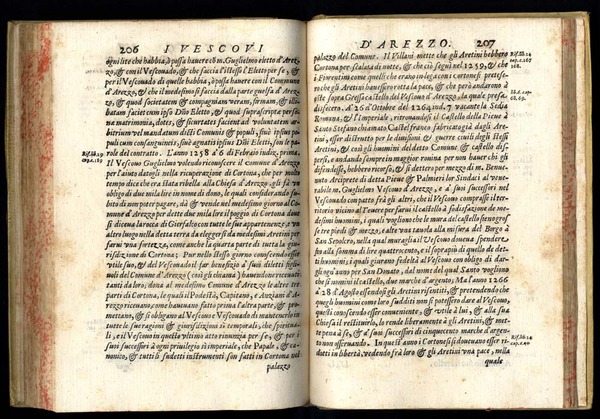 206 I VESCOVI
ogni lite che habbia, ò possa havere esso m. Guglielmo eletto d'Arez-
zo, & con il Vescovado, & che faccia l'istesso l'Eletto per se, & per
il Vescovado di quelle habbia, ò possa havere con il Commune
d'Arezzo, & che il medesimo si faccia dalla parte guelfa d'Arez-
zo, & quod societatem & compagniam veram, firmam, & illi-
batam faciet cum ipso Eletto, & quod supra scripta per sua
ma matrimonia, dotes, & sicurtates facient ad voluntatem ar-
bitrium vel mandatum dicti Comunis & populi, sivè ipsius po-
puli cum sanguineis, sivè agnatis ipsius Dñi Electi, son le pa-
role del contratto. L'anno 1258 à 6 di Febraio indiz. prima.
Il Vescovo Guglielmo volendo riconoscere il commune d'Arez-
zo per l'aiuto datogli nella ricuperatione di Cortona, che per molto
tempo dice ch'era stata ribella alla Chiesa d'Arezzo, gli fà un
obligo di due mila lire in nome di dono, le quali considerando su-
bito di non poter pagare, dà & vende nel medesimo giorno al Co-
mune d'Arezzo per dette due mila lire il poggio di Cortona dove
si diceva la rocca di Ghisfalco con tutte le sue appartenenze & un
altro luogo nella detta terra da eleggersi da medesimi Aretini per
farvi una fortezza, come anche la quarta parte di tutta la giu-
risditione di Cortona; Pur nello stesso giorno conoscendo esser
utile suo, & del Vescovado il far benefitio à suoi diletti figliuoli
mili del Comune d'Arezzo (così gli chiama) havendo con ricevuti
tanti da loro, dona al medesimo Comune d'Arezzo le altre tre
parti di Cortona, le quali il Podestà, Capitano, & Anziani d'A-
rezzo ricevano come havevano fatto prima l'altra parte, & pro-
mettano, & si obligano al Vescovo & Vescovado di mantenerlo in
tutte le sue ragioni & giurisdizioni sì temporali, che spiritua-
li, e il Vescovo in questo ultimo atto rinuncia per se, & per i
suoi successori à ogni privilegio sì imperiale, che Papale, & ca-
nonico, & tutti li sudetti instrumenti son fatti in Cortona nel
palazzo
D'AREZZO. 207
palazzo del Comune. Il Villani mette che gli Aretini hebbero
Cortona per scalata di notte, & che ciò seguì nel 1259, & che
i Fiorentini come quelli che erano in lega con i Cortonesi pretese-
ro che gli Aretini havessero rotta la pace, & che però andarono à
oste sopra Gressa castello del Vescovo d'Arezzo, la quale presa
disfecero. A 26 d'Ottobre del 1264 ind. 7 vacante la Sedia
Romana, & l'Imperiale, ritrovandosi il Castello della Pieve à
Santo Stefano chiamato Castel franco fabricato già dagli Are-
tini, esser distrutto per le divisioni & guerre civili degli stessi
Aretini, & così gli huomini del detto Castello & Comune di-
spersi, e andando sempre in maggior rovina per non haver chi gli
difendesse, hebbero ricorso, & si dettero per mezzo di m. Benve-
nuto Arciprete di detta Pieve & Palmieri lor Sindaci al Vener-
rabile m. Guglielmo Vescovo d'Arezzo, e à suoi successori nel
Vescovado con patto frà gli altri, che il Vescovo comprasse il ter-
ritorio vicino al Tevere per farvi il castello à sodisfazione de me-
desimi huomini, i quali vogliono che le mura del castello sieno gros-
se tre piedi & mezzo, e alte una taula alla misura del Borgo à
San Sepolcro, nella qual muraglia il Vescovo doveva spender-
vi fino alla somma di lire quattrocento, e il soprapiù di quello de det-
ti huomini, i quali giurano fedeltà al Vescovo con obligo di dar-
gli ogni anno per San Donato, dal nome del qual Santo vogliono
che si nomini il castello, due marche d'argento. Ma l'anno 1266
à 28 d'Agosto essendosi gli Aretini risentiti, & pretendendo che
quegli huomini come lor sudditi non si potessero dare al Vescovo,
questi conoscendo esser conveniente, & utile à lui, & alla sua
Chiesa il restituirlo, lo rende liberamente à gli Aretini, & met-
te pena à se, & à suoi successori di cinquecento marche d'argen-
to non osservando. In quest' anno i Cortonesi dovevano esser ri-
dotti in libertà, vedendosi frà loro & gli Aretini una pace, nella
quale